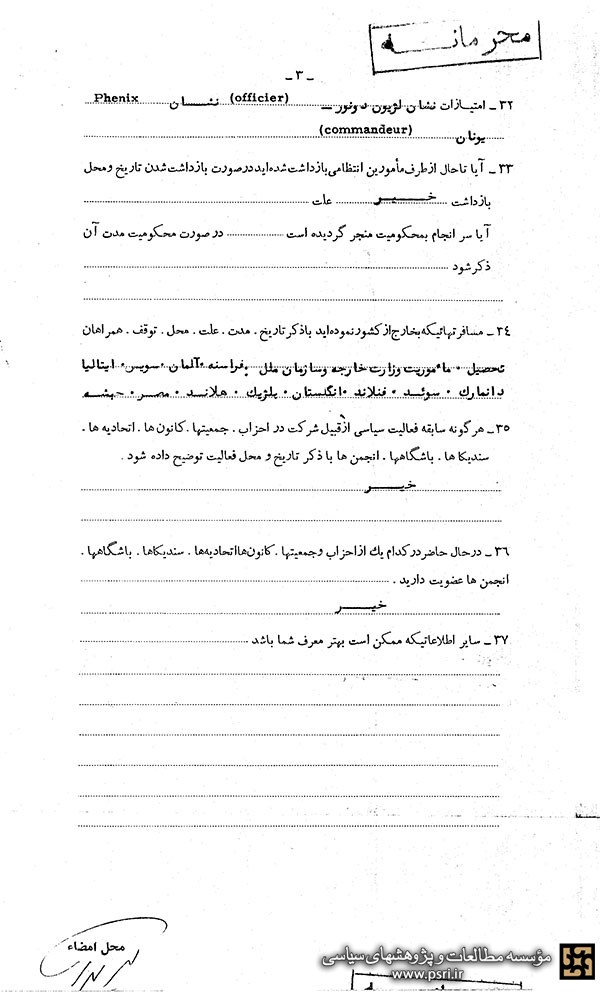 محرمانه
ـ ۳ ـ
۳۲ ـ امتیازات نشان لژیون دونور ـ (officier) نشان Phenix
یونان (commandeur)
۳۳ ـ آیا تاحال از طرف مأمورین انتظامی بازداشت شده اید در صورت بازداشت شدن تاریخ و محل
بازداشت خیر علت
آیا سر انجام بمحکومیت منجر گردیده است در صورت محکومیت مدت آن
ذکر شود
۳۴ ـ مسافرتهائیکه بخارج از کشور نموده اید با ذکر تاریخ . مدت . علت . محل . توقف . همراهان
تحصیل ۰ مأموریت وزارت خارجه وسازمان ملل بفرانسه ۰ آلمان ۰ سویس ۰ ایتالیا
دانمارک ۰ سوئد ۰ فنلاند ۰ انگلستان ۰ بلژیک ۰ هلاند ۰ مصر ۰ حبشه
۳۵ ـ هر گونه سابقه فعالیت سیاسی از قبیل شرکت در احزاب . جمعیتها . کانون ها . اتحادیه ها .
سندیکا ها . باشگاهها . انجمن ها با ذکر تاریخ و محل فعالیت توضیح داده شود .
خیر
۳۶ ـ در حال حاضر در کدام یک از احزاب و جمعیتها . کانون ها اتحادیه ها . سندیکاها . باشگاهها .
انجمن ها عضویت دارید .
خیر
۳۷ ـ سایر اطلاعاتیکه ممکن است بهتر معرف شما باشد
محل امضاء
مؤسسه مطالعات و پژوهشهای سیاسی
www.psri.ir